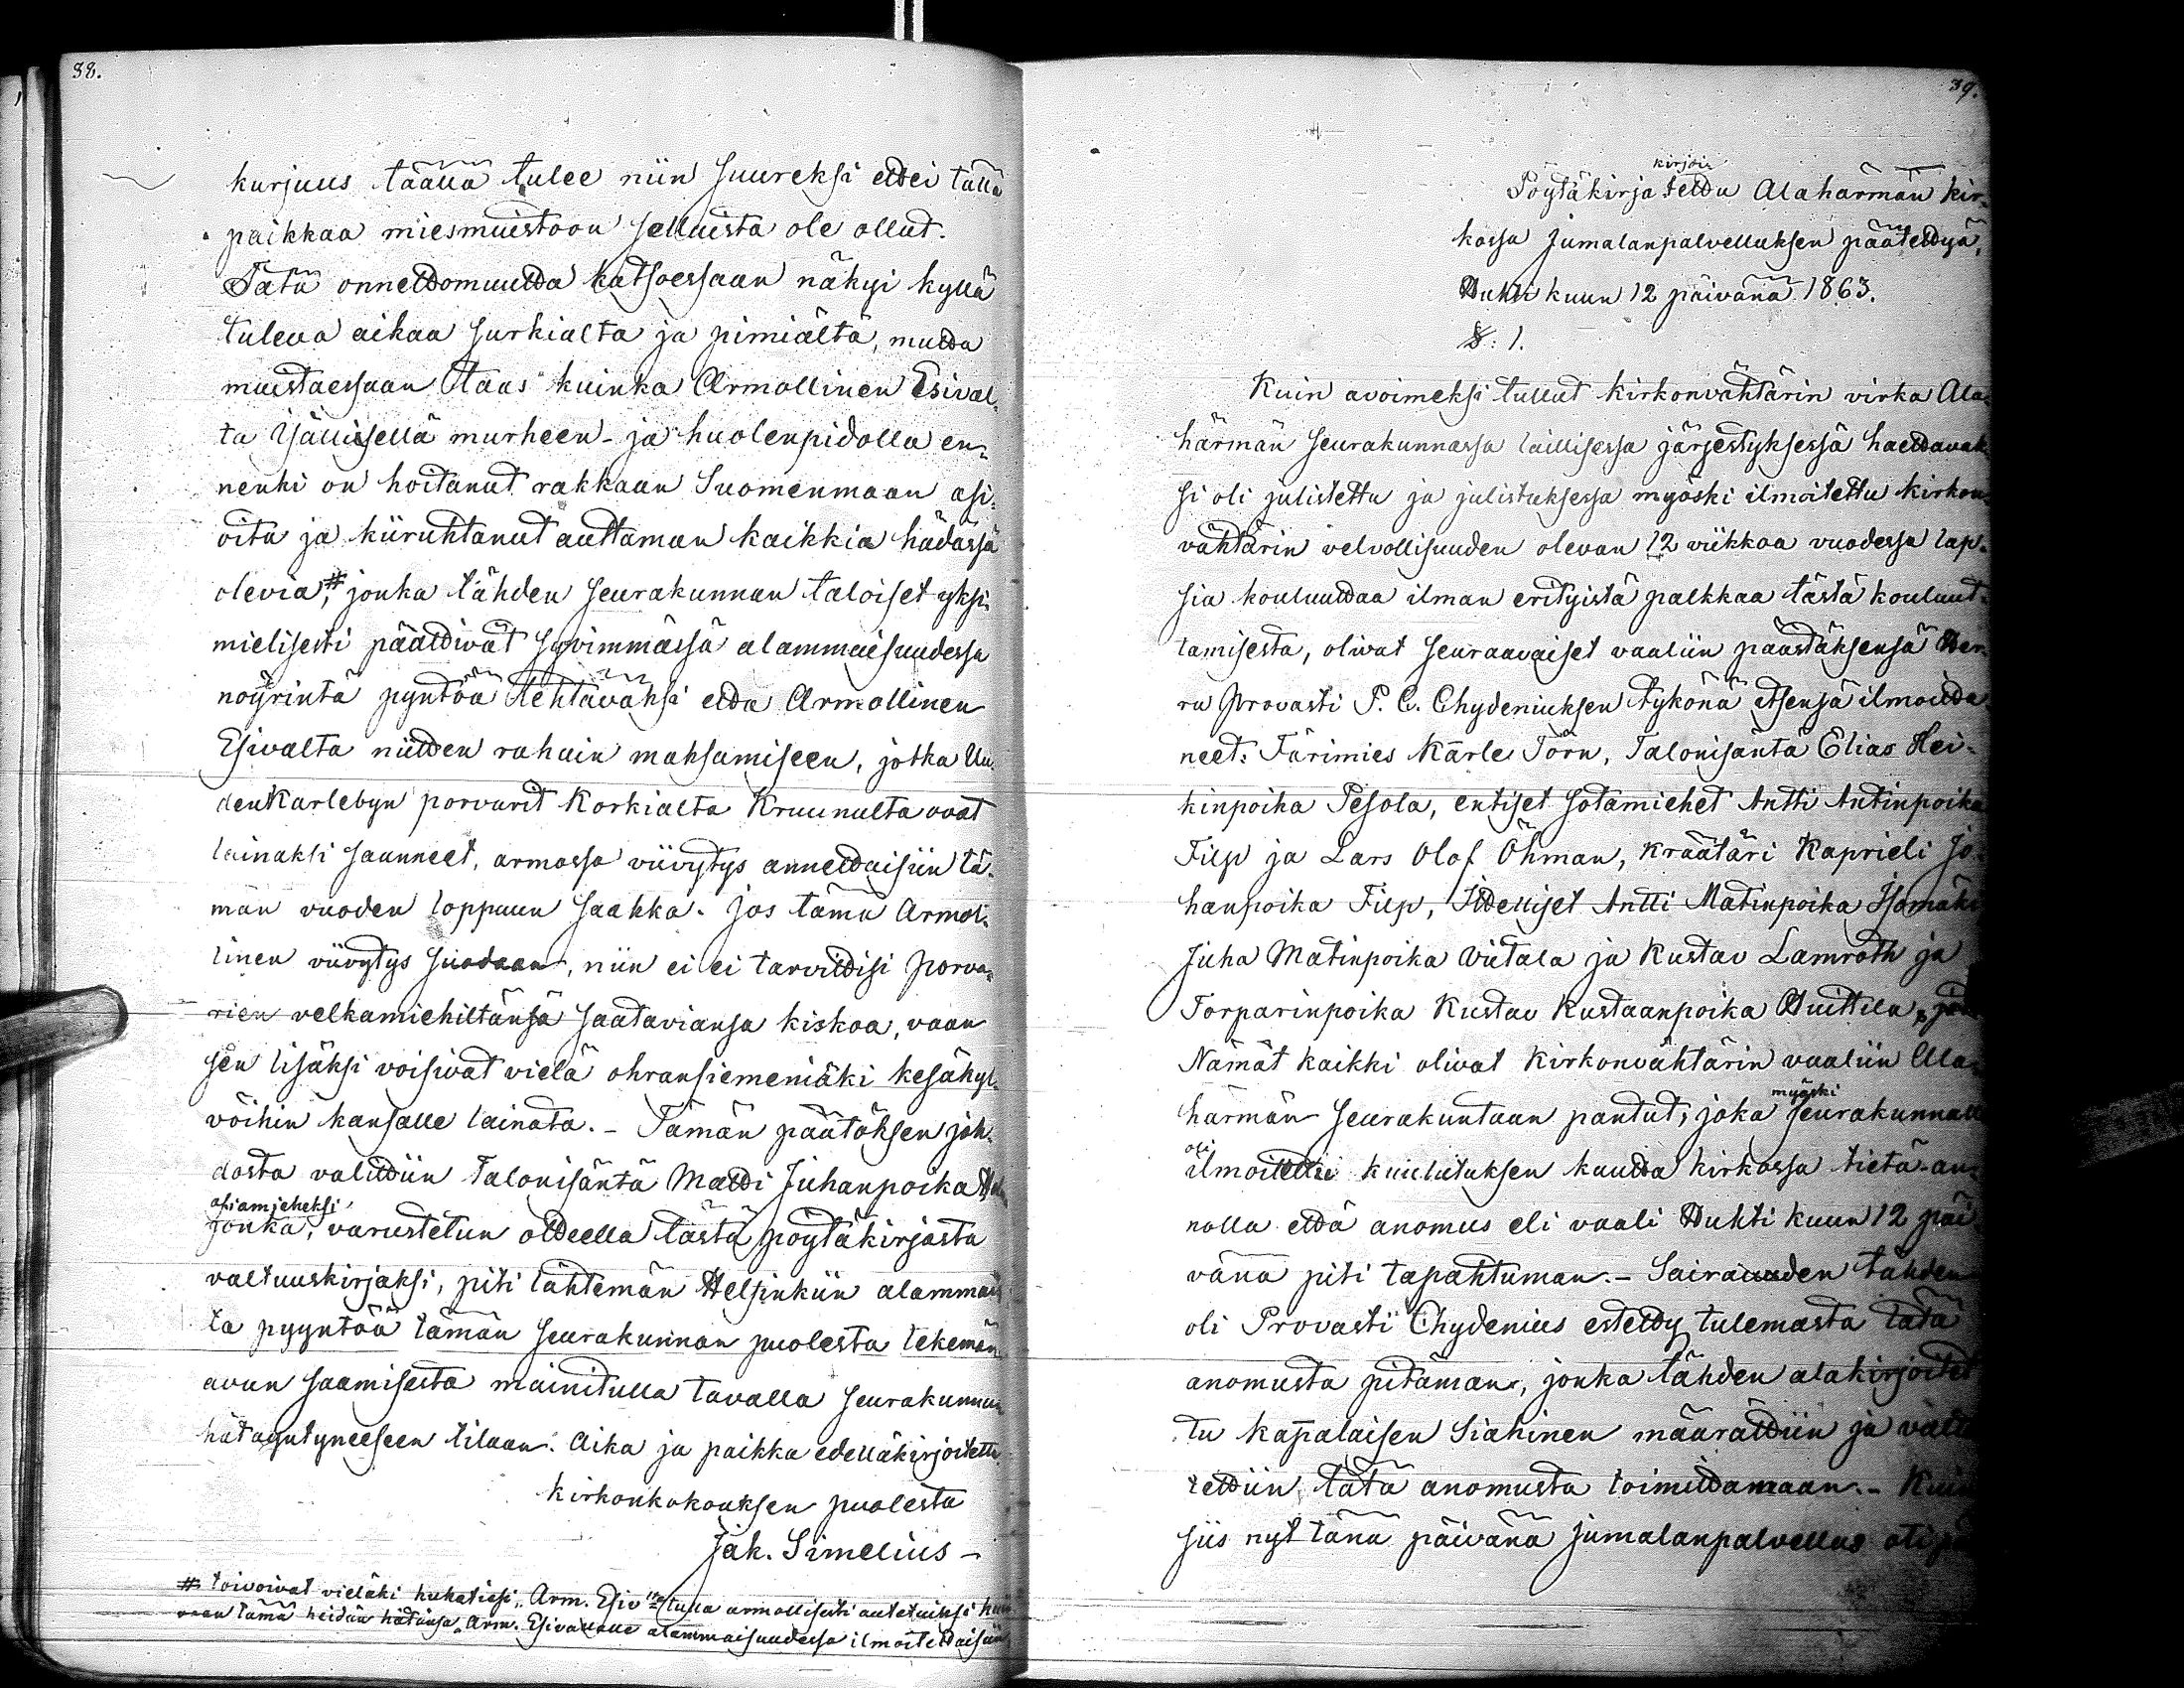 38.
kurjuus täällä tulee niin suureksi ettei tällä
paikkaa miesmuistoon sellaista ole ollut.
Tätä onnettomuutta katsoessaan näkyi kyllä
tuleva aikaa surkialta ja pimiältä, mutta
muistaessaan taas kuinka Armollinen Esival-
ta Isällisellä murheen- ja huolenpidolla en-
nenki on hoitanut rakkaan Suomenmaan asi-
oita ja kiiruhtanut auttaman kaikkia hädässä
olevia,# jonka tähden seurakunnan taloiset yksi-
mielisesti päättivät syvimmässä alammaisuudessa
nöyrintä pyntöä tehtäväksi että Armollinen
Esivalta niitten rahain maksamiseen, jotka Uu-
denKarlebyn porvarit Korkialta Kruunulta ovat
lainaksi saanneet, armossa viivytys annettaisiin tä-
män vuoden loppuun saakka. Jos tämä Armol-
linen viivytys suodaan, niin ei ei tarvittisi porva-
rien velkamiehiltänsä saataviansa kiskoa, vaan
sen lisäksi voisivat vielä ohransiemeniäki kesäkyl-
vöihin kansalle lainata. - Tämän päätöksen joh-
dosta valittiin Talonisäntä Matti Juhanpoika
asiamieheksi
jonka, varustetun otteella tästä pöytäkirjasta
valtuuskirjaksi, piti lähtemän Helsinkiin alammais-
ta pyyntöä tämän seurakunnan puolesta tekemän
avun saamisesta mainitulla tavalla seurakunnan
hätäyntyneeseen tilaan. Aika ja paikka edelläkirjoitettu.
kirkonkokouksen puolesta
Jak. Simelius -
# toivoivat vieläki hukatiasi Arm. Esiv tulla armollisesti autetuiksi kun
vaan tämä heidän hätänsä Arm. Esivallalle alammaisuudessa ilmoitettaisiin
39.
kirjoi-
Pöytäkirja tettu Alahärmän kir-
kossa Jumalanpalvelluksen päätettyä,
Huhti kuun 12 päivänä 1863.
§: 1.
Kuin avoimeksi tullut kirkonvahtärin virka Ala-
härmän seurakunnassa laillisessa järjestyksessä haettavak-
si oli julistettu ja julistuksessa myöski ilmoitettu kirkon-
vahtärin velvollisuuden olevan 12 viikkoa vuodessa lap-
sia kouluuttaa ilman erityistä palkkaa tästä kouluut-
tamisesta, olivat seuraavaiset vaaliin päästäksensä Her-
ra Provasti P. C. Chydeniuksen tykönä itsensä ilmoitta-
neet: Färimies Karle Törn, Talonisäntä Elias Hei-
kinpoika Pesola, entiset sotamiehet Antti Antinpoika
Filp ja Lars Olof Öhman, kräätäri Kaprieli Jo-
hanpoika Filp, Itelliset Antti Matinpoika Isomäki
Juha Matinpoika Viitala ja Kustav Lamroth ja
Torparinpoika Kustav Kustaanpoika Huittila,
Nämät kaikki olivat kirkonvahtärin vaaliin Ala-
myöski
härmän seurakuntaan pantut, joka seurakunnalle
oli
ilmoitettu kuulutuksen kautta kirkossa tietä-an-
nolla että anomus eli vaali Huhti kuun 12 päi-
vänä piti tapahtuman. - Sairauden tähden
oli Provasti Chydenius estetty tulemasta tätä
anomusta pitämän, jonka tähden alakirjoitet-
tu kapalaisen Siahinen määrättiin ja
tettiin tätä anomusta toimittamaan. - Kuin
siis nyt tänä päivänä Jumalanpalvellus oli